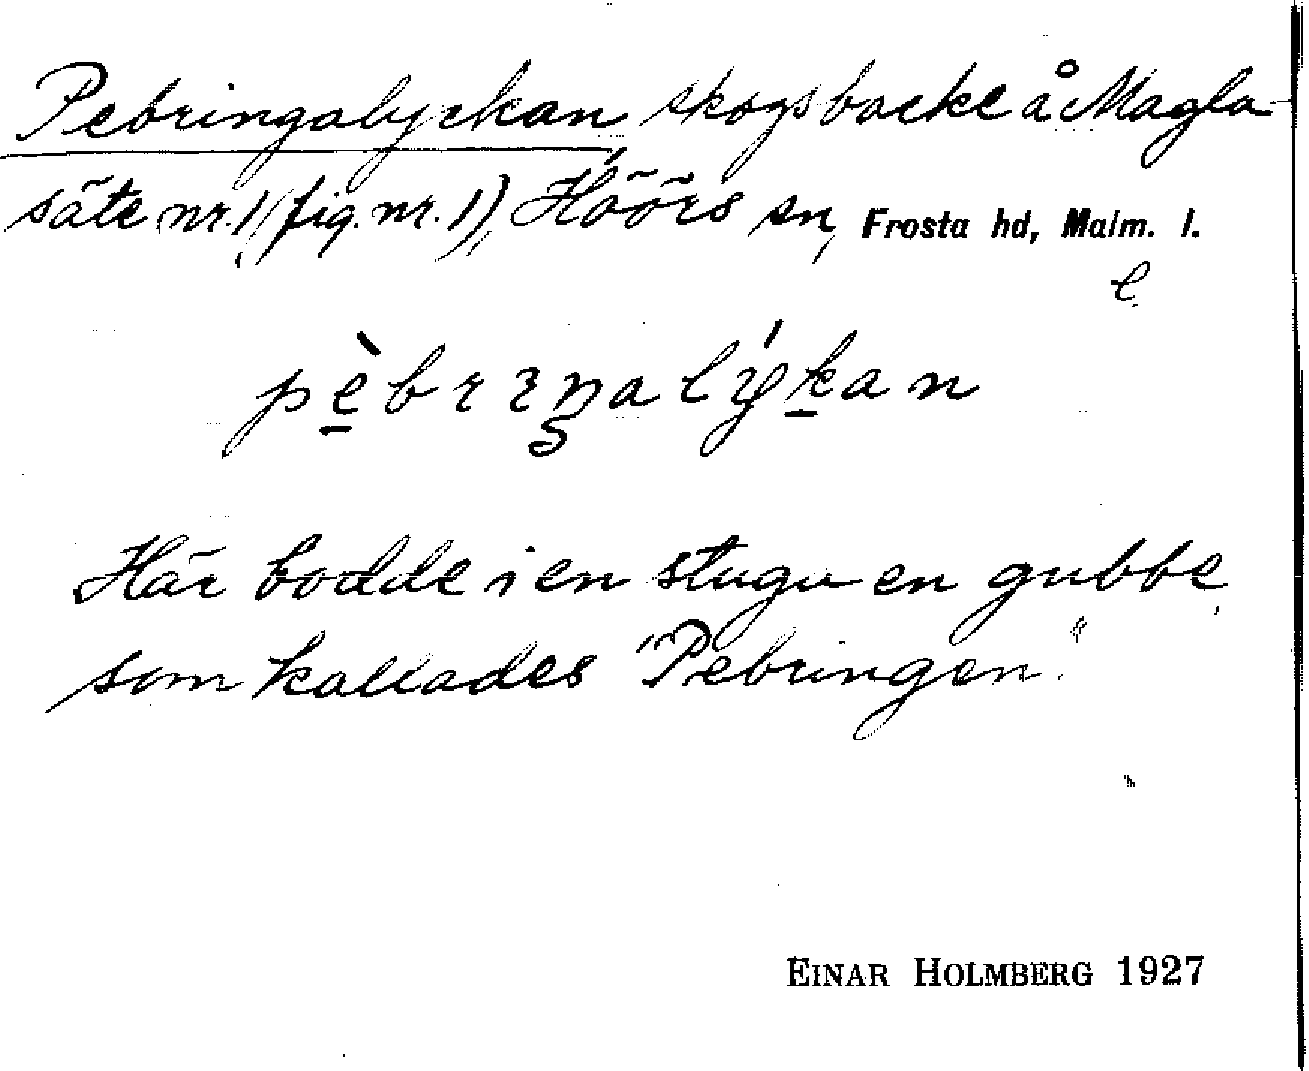 Pebringalyckan skogsbacke å Magla-
säte nr. 1 (fig. nr. 1), Höörs sn, Frosta hd, Malm. l.
e
pèbrıŋalýkan
Här bodde i en stuga en gubbe,
som kallades "Pebringen."
EINAR HOLMBERG 1927